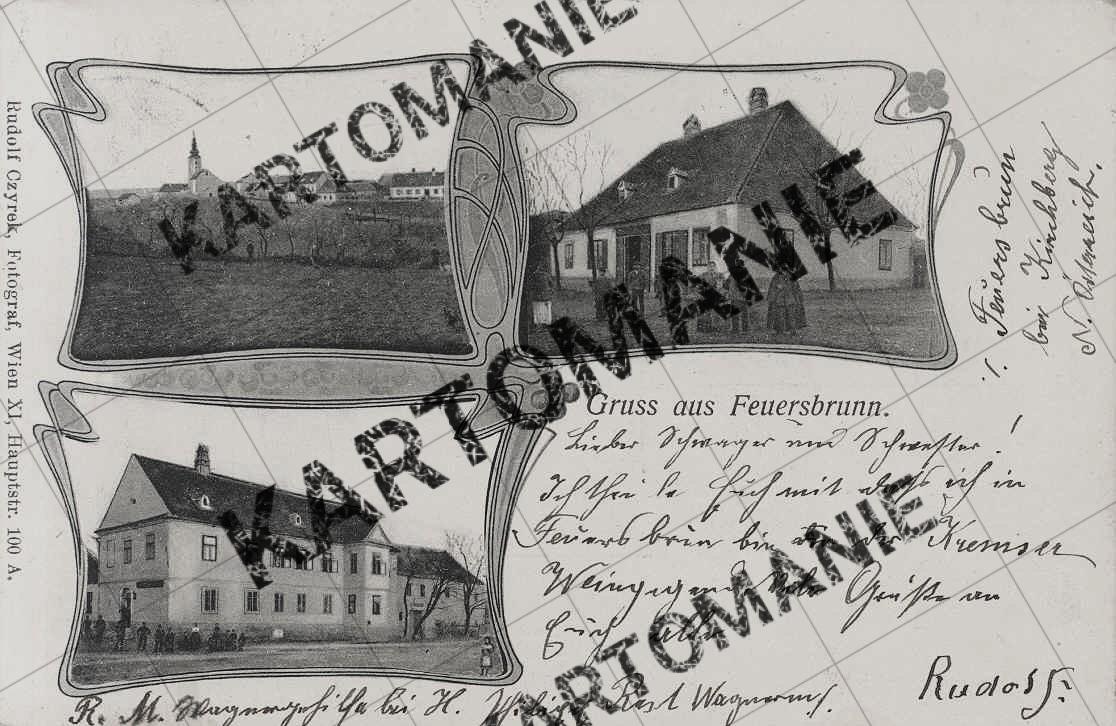 Rudolf Czyrek, Fotograf, Wien XI, Hauptstr. 100 A.
KARTOMANIE
KARTOMANIE
KARTOMANIE
KARTOMANIE
Feuersbrunn
bei Kirchberg
N. Österreich.
Gruss aus Feuersbrunn.
Lieber Schwager und Schwester!
Ich theile Euch mit dass ich in
Feuersbrun bin in der Kremser
Weingegend Grüße an
Euch alle
Rudolf
R. M. Wagnergehilfe bei H. Wagnerm.